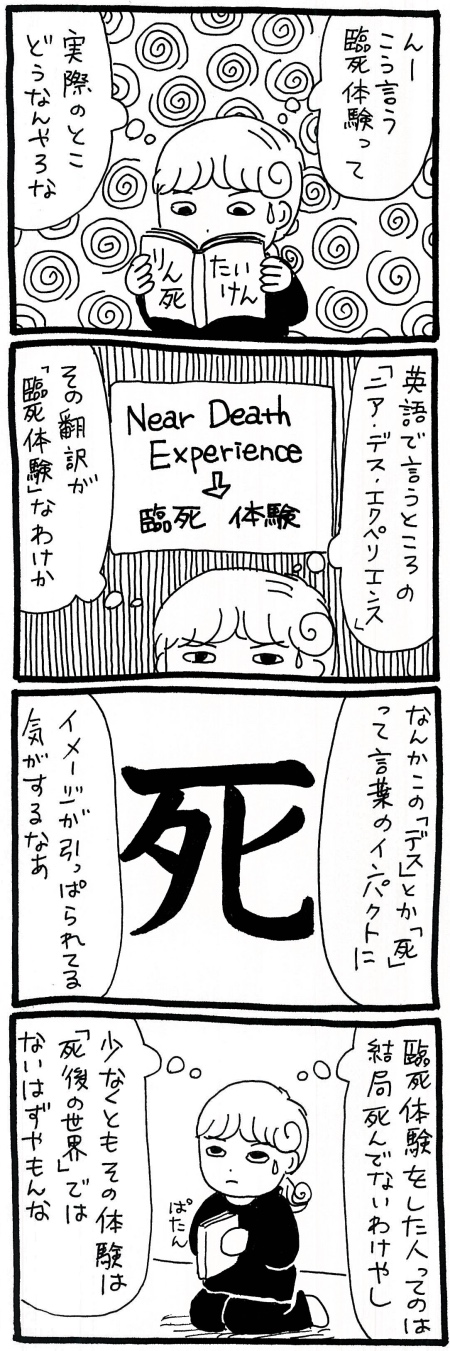 んー
こう言う
臨死体験って
実際のとこ
どうなんやろな
りん
死
たい
けん
英語で言うところの
「ニア・デス・エクペリエンス」
Near Death
Experience
臨死 体験
その翻訳が
「臨死体験」なわけか
なんかこの「デス」とか「死」
って言葉のインパクトに
死
イメージが引っぱられてる
気がするなあ
臨死体験をした人ってのは
結局死んでないわけやし
ぱたん
少なくともその体験は
「死後の世界」では
ないはずやもんな